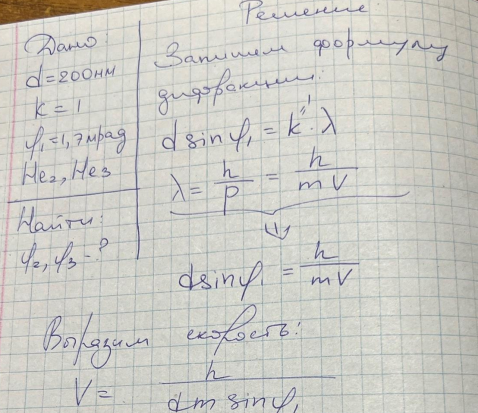 Решение
Дано:
d=200нм
k=1
φ₁=1,7мрад
He₂, He₃
Найти:
φ₂, φ₃ -?
Запишем формулу
дифракции:
d sin φ₁ = k^{"1} · λ
λ = h/p = h/(mV)
⇓
d sin φ₁ = h/(mV)
Выразим скорость:
V = h/(dm sin φ₁)